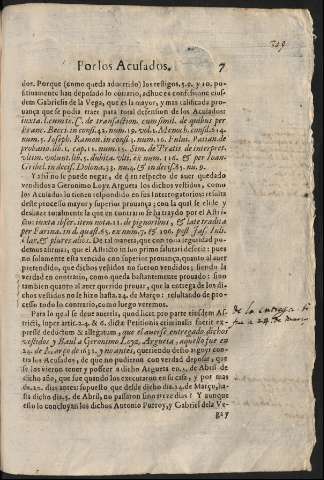 Por los Acusados. 7
dos. Porque (como queda aduertido) los testigos, 5.9. y 10. po-
sitiuamente han deposado lo contrario, adhuc ex confessione eius-
dem Gabrielis de la Vega, que es la mayor, y mas calificada proua-
nça que se podia traer para total defension de los Acusados:
iuxta l. cum te. C. de transaction. cum simil. de quibus per
Franc. Becci. in cons. 42. num. 19. vol. 1. Menoch. cons. 214.
num. 5. Ioseph. Ramon. in cons. 3. num. 16. Fului. Pacian. de
probatio. lib. 1. cap. 11. num. 15. Sim. de Prætis de interpret.
vltim. volunt. lib. 5. dubita. vlt. ex num. 116. & per Ioan.
Y assi no se puede negar, de q en respecto de auer quedado
vendidos a Geronimo Loyz Argueta los dichos vestidos, como
los Acusados lo tienen respondido en sus Interrogatorios: resulta
deste processo mayor y superior prouança; con la qual se elide y
deshaze totalmente la que en contrario se ha traydo por el Astric-
to: iuxta
per Farina. in d. quæst. 65. ex num. 7. & 106. post Ias. Iuli.
Clar. & plures alios. De tal manera, que con toda seguridad po-
demos afirmar, que el Astricto in suo primo salutari defecit: pues
no solamente esta vencido con superior prouança, quanto al auer
pretendido, que dichos vestidos no fueron vendidos; siendo la
verdad en contrario, como queda bastantemente prouado: sino
tambien quanto al auer querido prouar, que la entrega de los di-
chos vestidos no se hizo hasta 24. de Março: resultando de pro-
cesso todo lo contrario, como luego veremos.
Para lo qual se deue aduertir, quod licet pro parte eiusdem As-
tricti, super artic. 24. & 6. dictæ Petitionis criminalis fuerit ex-
presse deductum & allegatum, que el auerse entregado dichos
vestidos y Baul a Geronimo Loyz, Argueta, aquesto fue en
24. de Março de 1631. y no antes, queriendo desto arguyr con-
tra los Acusados, de que no pudieron con verdad deposar, que
se los vieron tener y posseer a dicho Argueta en 5. de Abril de
dicho año, que fue quando los executaron en su casa, y por mas
de 25. dias antes: supuesto que desde dicho dia 24. de Março, ha-
sta dicho dia 5. de Abril, no passaron sino treze dias: Y aunque
esso lo concluyan los dichos Antonio Purroy, y Gabriel de la Ve-
ga; y
de la entrega
fue a 24 de março